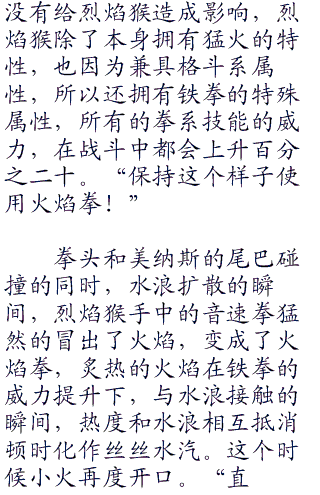 没有给烈焰猴造成影响，烈
焰猴除了本身拥有猛火的特
性，也因为兼具格斗系属
性，所以还拥有铁拳的特殊
属性，所有的拳系技能的威
力，在战斗中都会上升百分
之二十。“保持这个样子使
用火焰拳！”
拳头和美纳斯的尾巴碰
撞的同时，水浪扩散的瞬
间，烈焰猴手中的音速拳猛
然的冒出了火焰，变成了火
焰拳，炙热的火焰在铁拳的
威力提升下，与水浪接触的
瞬间，热度和水浪相互抵消
顿时化作丝丝水汽。这个时
候小火再度开口。“直